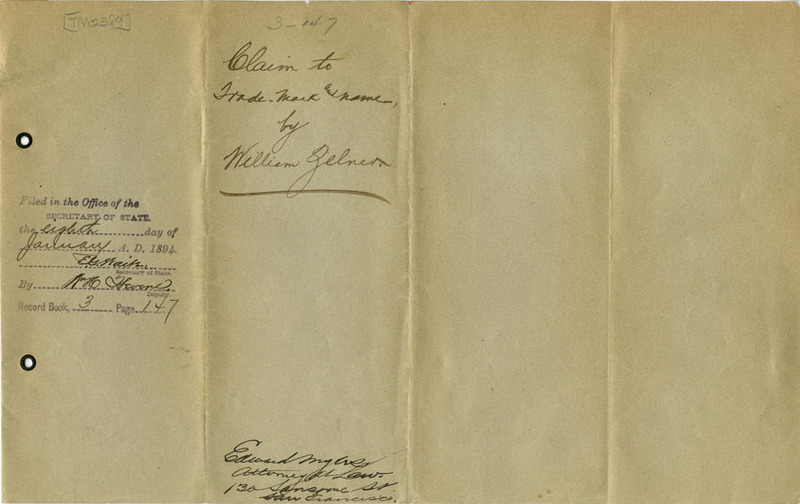 TM2289
Filed in the Office of the
SECRETARY OF STATE,
the eighth day of
January A. D. 1894
Secretary of State.
By
Deputy.
Record Book, 3 Page 147
3-147
Claim to
Trade-Mark & name,
by
William Zelner.
Edward Myers
Attorney at Law.
130 Sansome St
San Francisco.